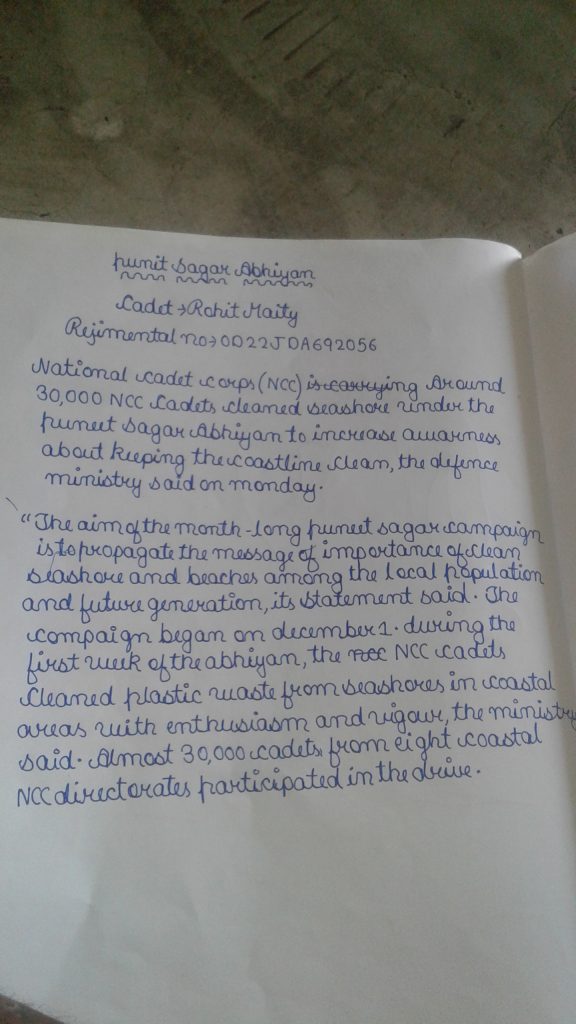 punit sagar Abhiyan
Cadet → Rohit Maity
Rejimental no → OD22JDA692056
National cadet corps (NCC) is carrying Around
30,000 NCC Cadets cleaned seashore under the
puneet sagar Abhiyan to increase awarness
about keeping the coastline clean, the defence
ministry said on monday.
"The aim of the month-long puneet sagar campaign
is to propagate the message of importance of clean
seashore and beaches among the local population
and future generation, its statement said. The
compaign began on december 1. during the
first week of the abhiyan, the NCC cadets
cleaned plastic waste from seashores in coastal
areas with enthusiasm and vigour, the ministry
said. Almost 30,000 cadets from eight coastal
NCC directorates participated in the drive.